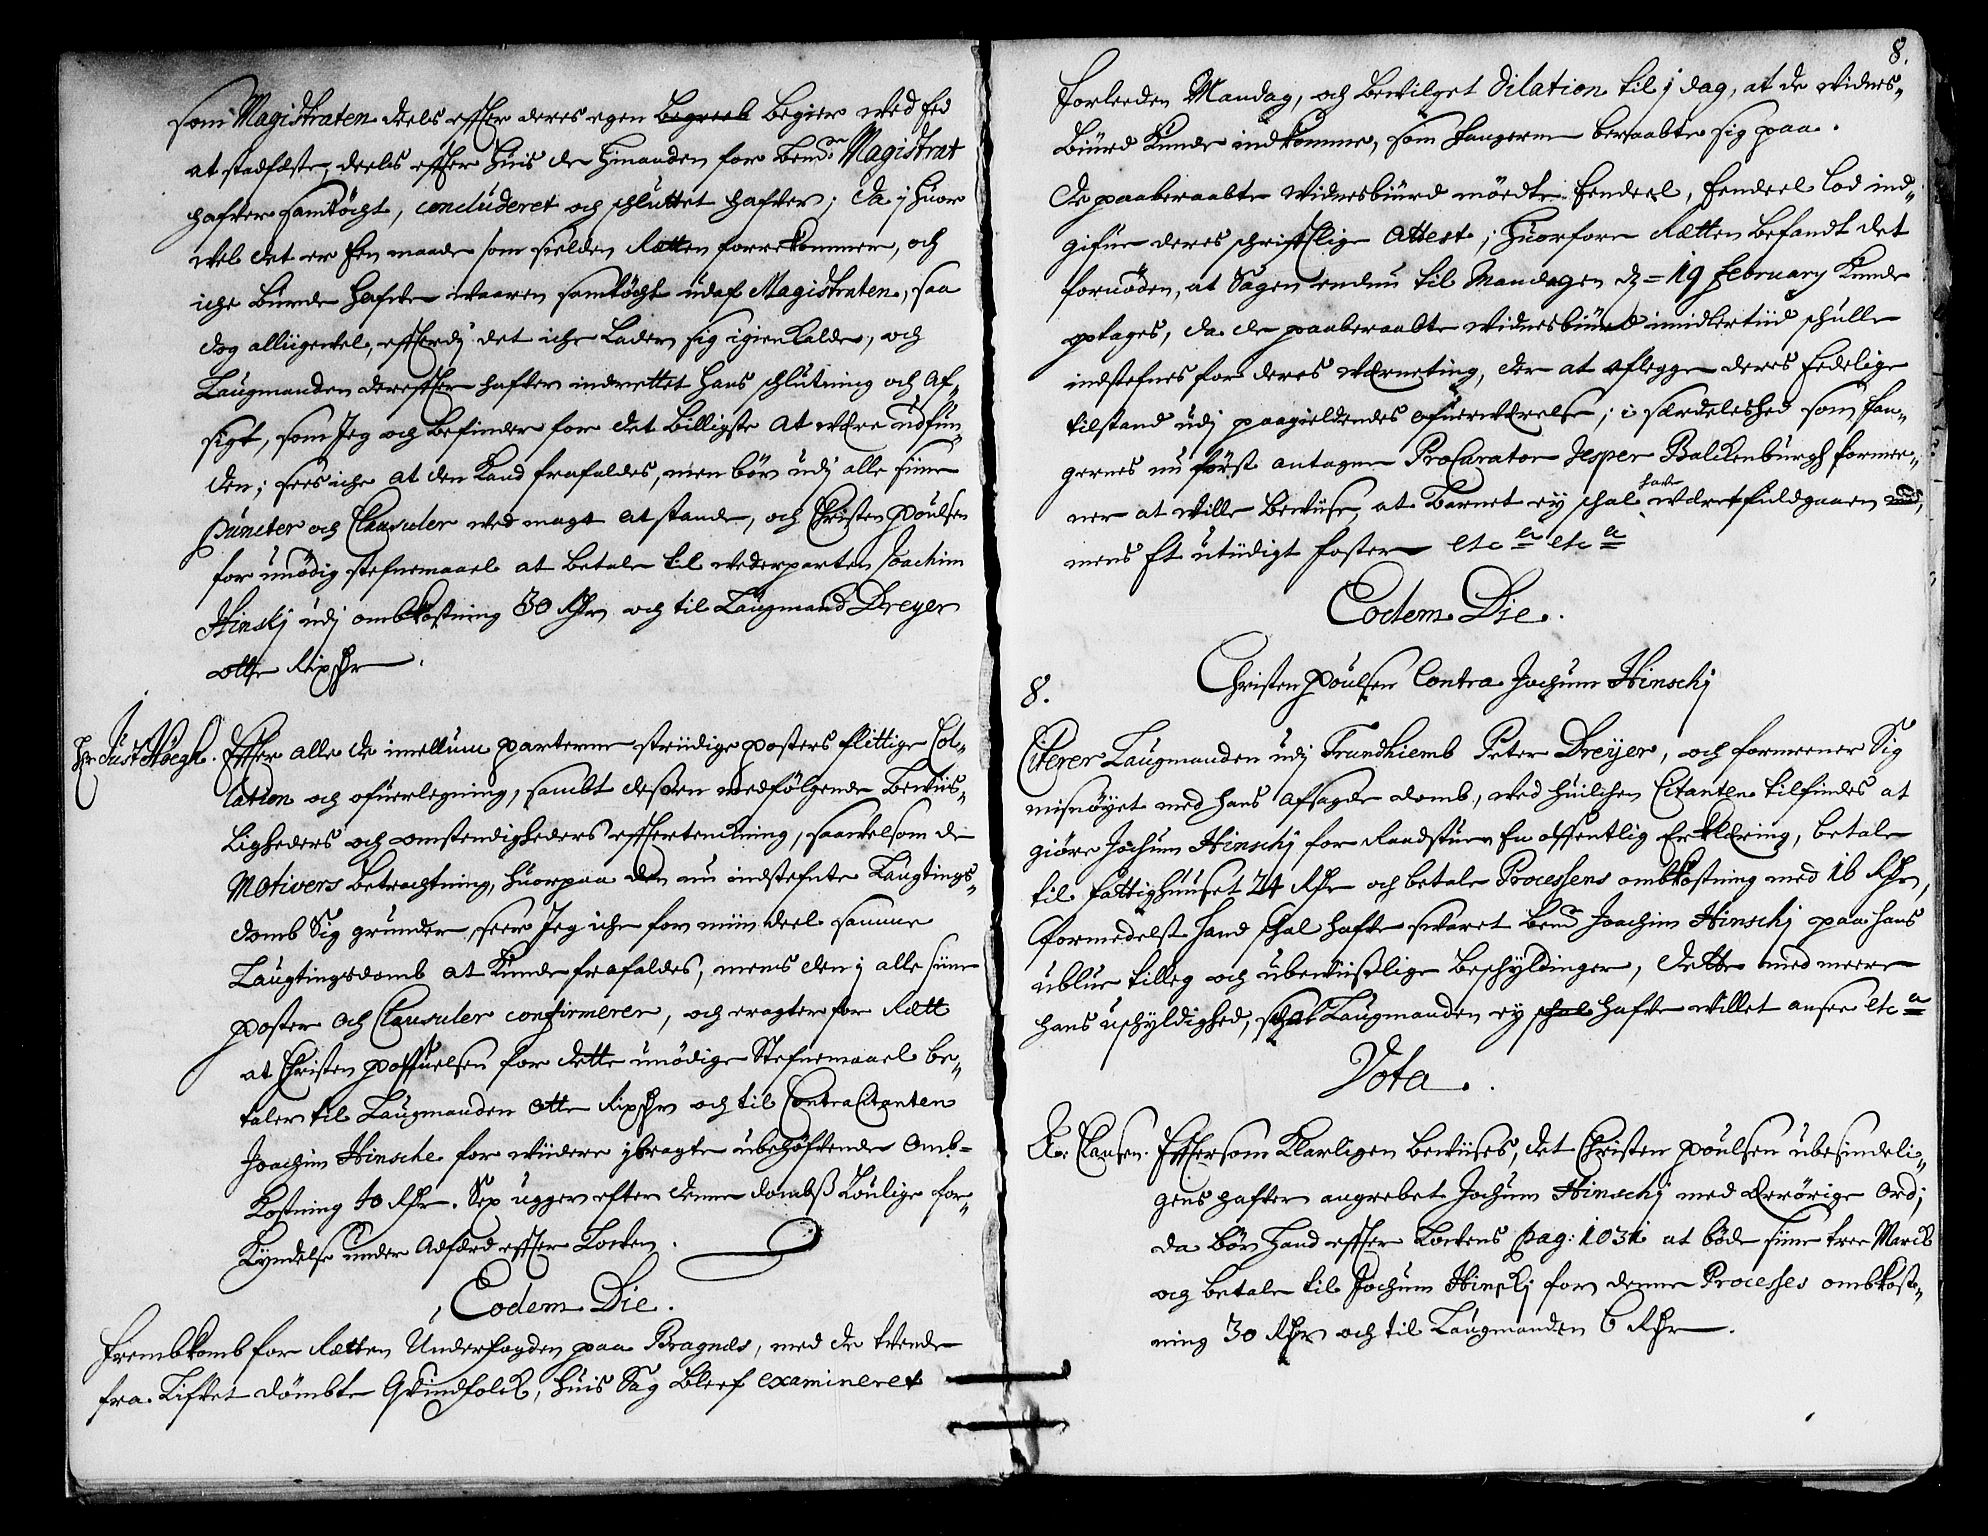 som Magistraten deels effter deres egen begreeb begier med Eed
at stadfæste, deels effter huis de hinanden for bend.te Magistrat
hafver samtøcht, concluderet och schluttet hafver; da j huor
vel det er Een maade som sielden Retten forrekommer, och
iche burde hafve waaren samtøcht udaf Magistraten, saa
dog alligevel, efterdj det iche lader sig igienkalde, och
Laugmanden dereffter hafver indrettet hans schlutning och af-
sigt, som Jeg och befinder for det billigste at være udfun-
den; sees iche at den kand frafaldes, men bør udj alle siine
puncter och Clausuler ved magt at stande, och Christen Poulsen
for unødig stefnemaael at betale til vederparten Joachim
Hinskj udj ombkostning 30 Rdr och til Laugmand Dreyer
otte Rixdr.
Hr Just Høegh. Effter alle de imellum parterne striidige posters flittige Col-
lation och ofuerlegning, sambt dessen medfølgende Beviis-
ligheders och omstendigheders effterteckning, saavelsom de
Motivers betrachtning, huorpaa den nu indstefnte Laugtings-
domb sig grunder, seer Jeg iche for miin deel samme
Laugtingsdomb at kunde frafaldes, mens den j alle siine
poster och Clausuler confirmerer, och eragter for Rett
at Christen Pofvelsen for dette unødige Stefnemaael be-
taler til Laugmanden otte Rixdr och til ContraCitanten
Joachim Hinsche for viidere ibragte ubehøfvende omb-
kostning 40 Rdr. Sex uger efter denne dombs Loulige for-
kyndelse under Adferd effter Loven.
Eodem Die.
Frembkomb for Retten Underfogden paa Bragnæs, med de tvende
fra Lifvet dømbte Qvindfolck, huis Sag bleef examineret
8.
forleeden Mandag, och bevilget dilation til j dag, at de vidnes-
biurd kunde indkomme, som fangerne beraabte sig paa.
De paaberaabte vidnesbiurd møedte Eendeel, Eendeel lod ind-
gifue deres schriftlige Attest; huorfore Retten befandt det
fornøden, at Sagen endnu til Mandagen d. 19 February kunde
optages, da de paaberaabte vidnesbiurd imidlertiid schulle
indstefnes for deres verneting, der at aflegge deres Eedelige
tilstand udj paagieldendes ofuerværelse; i særdeleshed som fan-
gernes nu først antagne Procurator Jesper Balckenburgh formee-
ner at ville bevise, at Barnet ej schal have været fuldgaaen,
mens Et utiidigt foster etc.a etc.a
Eodem Die.
Christen Poulsen Contra Jochum Hinschj
8.
Citerer Laugmanden udj Trundhiemb Peter Dreyer, och formeener sig
misnøyet med hans afsagde domb, ved huilchen Citanten tilfindes at
giøre Jochum Hinschj for Raadstuen En offentlig Erklæring, betale
til fattighuuset 24 Rdr och betale Processens ombkostning med 16 Rdr,
formedelst hand schal hafve svaret bend.te Joachim Hinschj paa hans
ublue tilleg och ubeviislige beschyldinger, dette med meere
hans uschyldighed, schal Laugmanden ey schal hafve villet ansee etc.a
Vota.
Clausen. Eftersom klarligen beviises, det Christen Poulsen ubesindeli-
gens hafver angrebet Jochum Hinschj med ærrørige ord;
da bør hand effter Lovens pag: 1031 at bøde siine tree Marck
og betale til Jochum Hinskj for denne Processes ombkost-
ning 30 Rdr och til Laugmanden 6 Rdr.